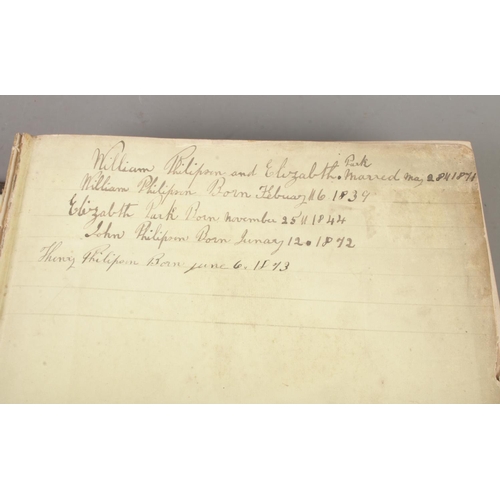 Park
William Philipson and Elizabth Marred May 28 1871
William Philipson Born Februay 16 1839
Elizabth Park Born november 25 1844
John Philipson Born Junary 12. 1872
Henry Philipson Born june 6. 1873